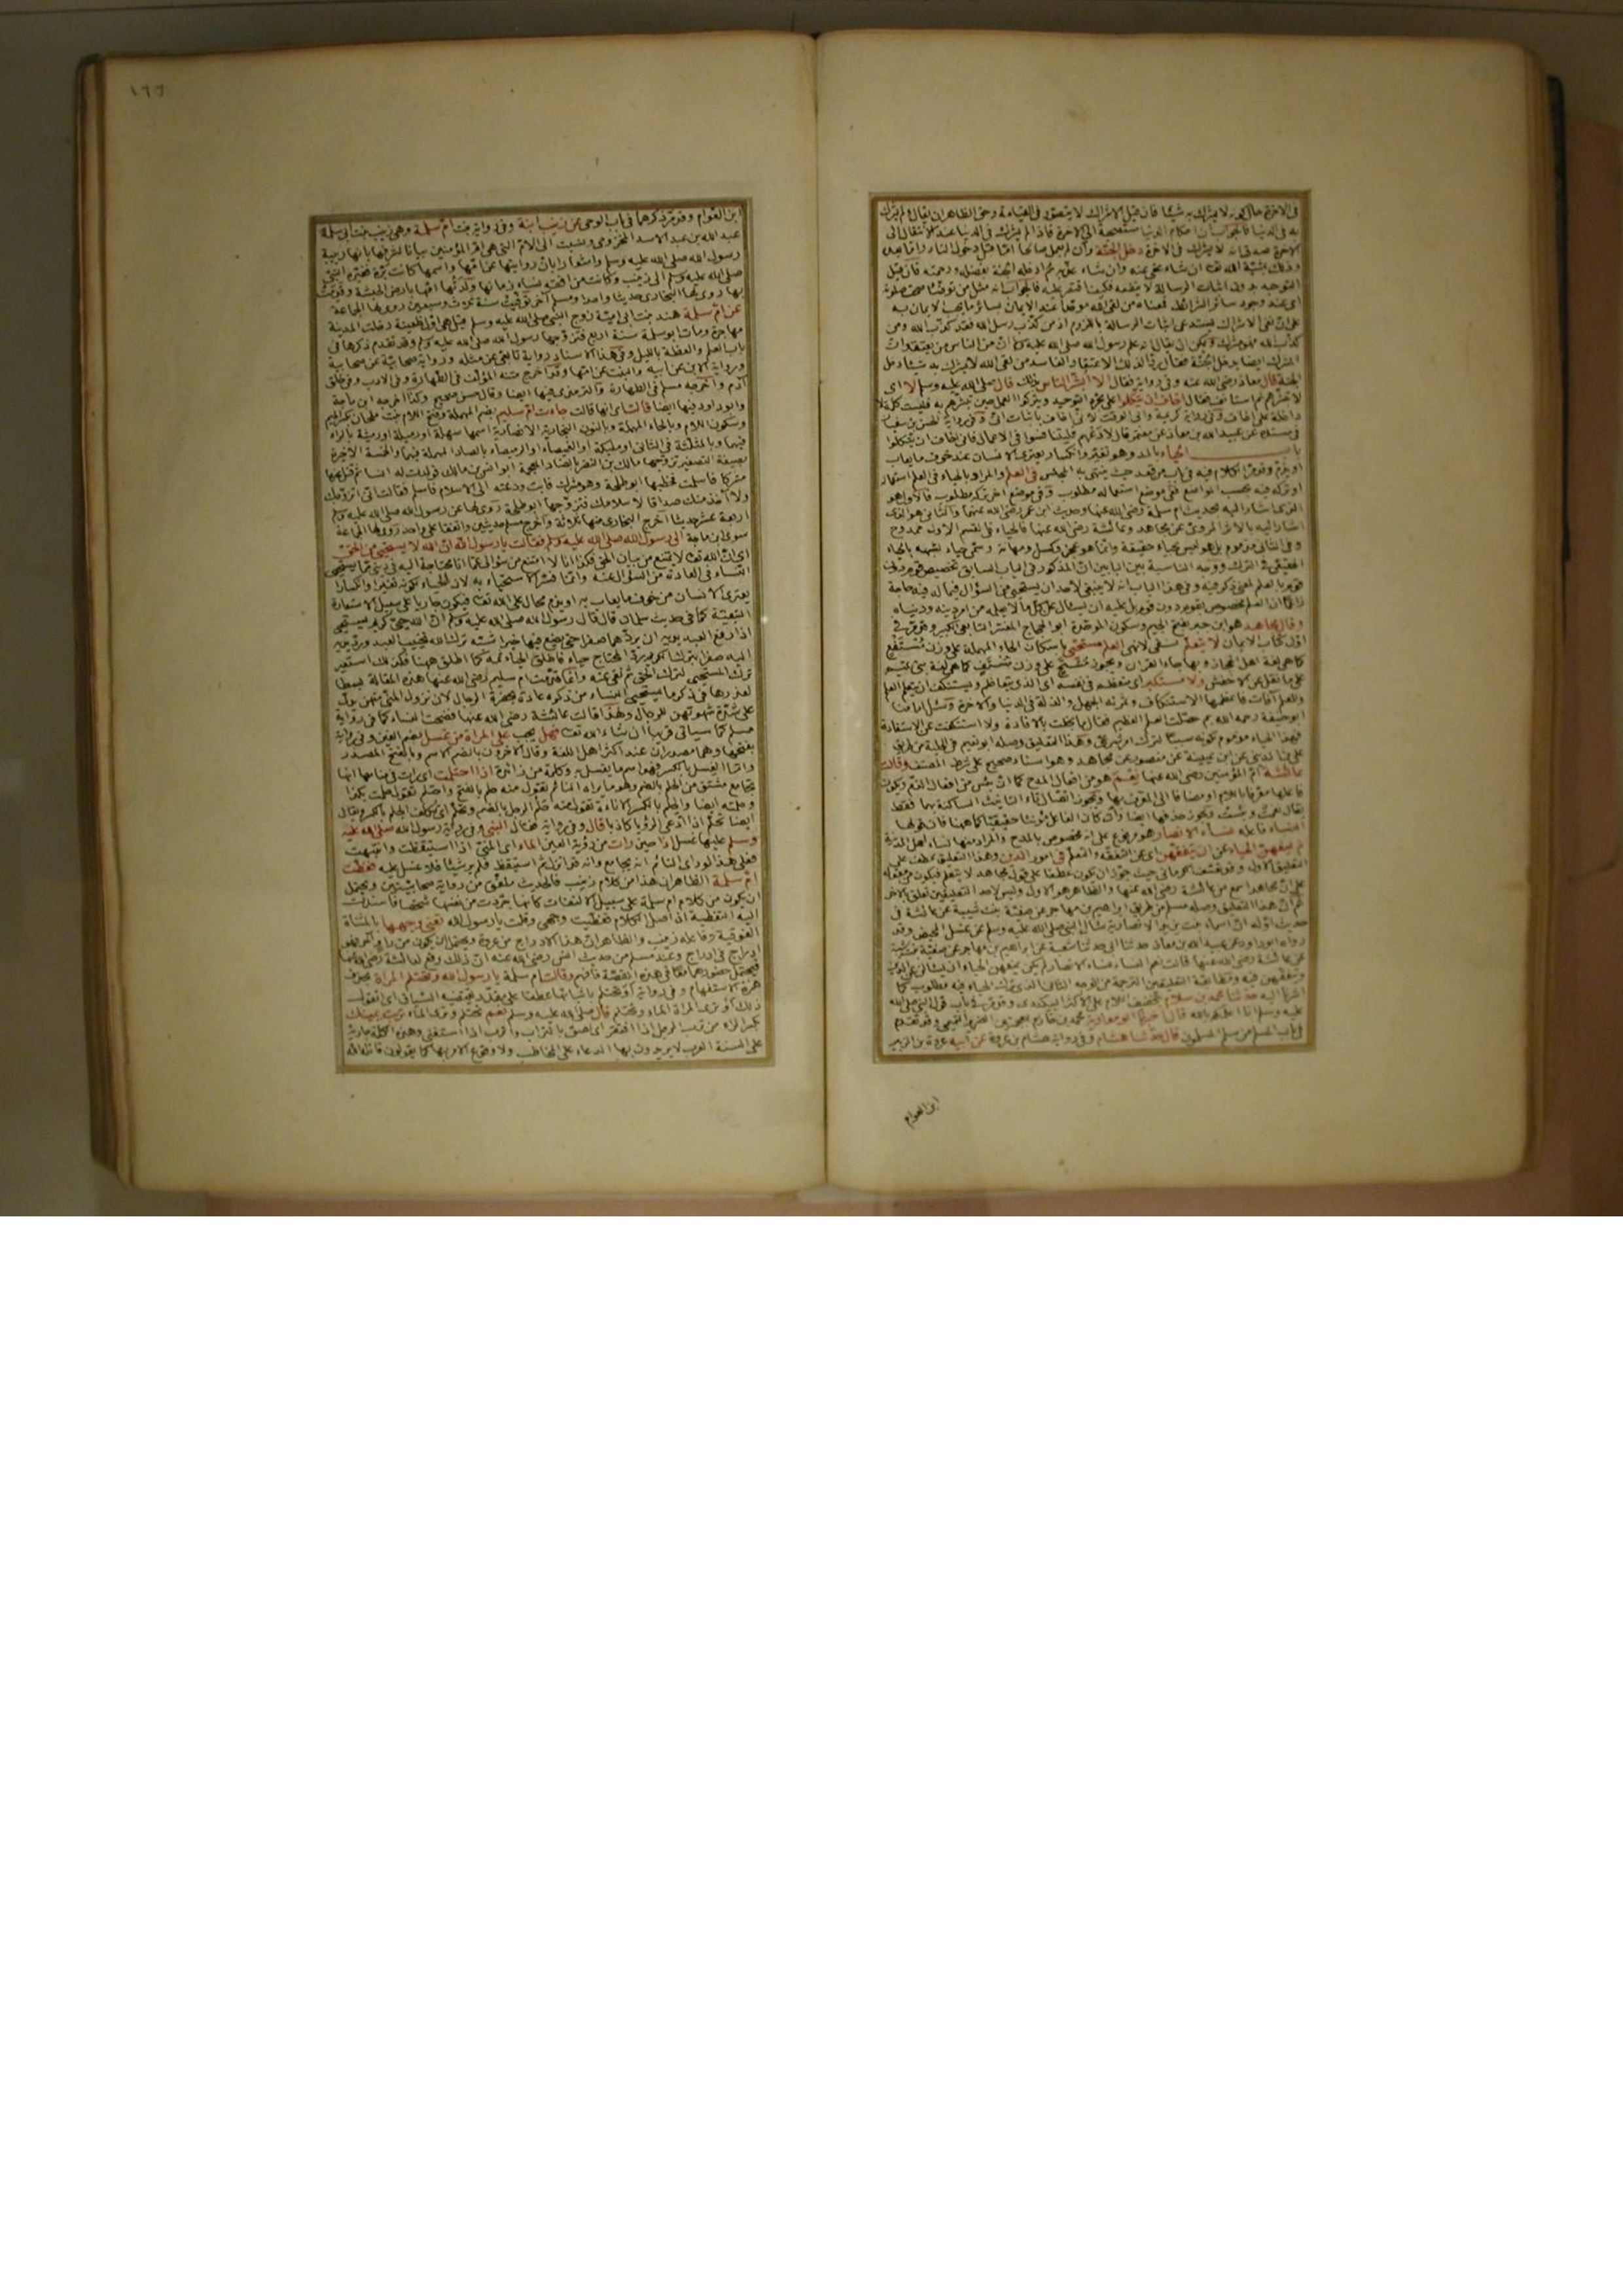 في الاخرة حال كونه لا يشرك به شيئا فان قيل الاشراك لا يتصور في القيامة وحق الظاهر ان يقال ولم يشرك
به في الدنيا فالجواب ان احكام الدنيا مستصحبة الى الاخرة فاذا لم يشرك في الدنيا عند الانتقال الى
الاخرة صدق انه لا يشرك في الاخرة دخل الجنة وان لم يعمل صالحا اما قبل دخول النار واما بعده
وذلك بمشية الله تعالى ان شاء عفى عنه وان شاء عذبه ثم ادخله الجنة بفضله ورحمته فان قيل
التوحيد بدون اثبات الرسالة لا ينفعه فكيف اقتصر عليه فالجواب انه مثل من توضأ صحت صلوته
اي عند وجود سائر الشرائط فمعناه من لقي الله موحدا عند الايمان بسائر ما يجب الايمان به
على ان نفي الاشراك يستدعي اثبات الرسالة باللزوم اذ من كذب رسل الله فقد كذب الله ومن
كذب الله فهو مشرك ويمكن ان يقال انه علم رسول الله صلى الله عليه وسلم ان من الناس من يعتقد ان
المشرك ايضا يدخل الجنة فقال ردا لذلك الاعتقاد الفاسد من لقي الله لا يشرك به شيئا دخل
الجنة قال معاذ رضي الله عنه وفي رواية فقال الا ابشر الناس بذلك قال صلى الله عليه وسلم لا اي
لا تبشرهم ثم استأنف فقال اخاف ان يتكلوا على مجرد التوحيد ويتركوا العمل حين تبشرهم به فليست كلمة لا
داخلة على اخاف وفي رواية كريمة وابي الوقت لا اني اخاف باثبات اني وفي رواية الحسن بن سفيان
في مسنده عن عبيد الله بن معاذ عن معتمر قال لا دعهم فليتنافسوا في الاعمال فاني اخاف ان يتكلوا
باب الحياء بالمد وهو تغير وانكسار يعتري الانسان عند خوف ما يعاب
او يذم وقد مر الكلام فيه في باب من قعد حيث ينتهي به المجلس في العلم والمراد بالحياء في العلم استعماله
او تركه فيه بحسب المواضع ففي موضع استعماله مطلوب وفي موضع اخر تركه مطلوب فالاول هو
الذي اشار اليه بحديث ام سلمة رضي الله عنها وحديث ابن عمر رضي الله عنهما والثاني هو الذي
اشار اليه بالاثر المروي عن مجاهد وعائشة رضي الله عنها فالحياء في القسم الاول ممدوح
وفي الثاني مذموم بل هو ليس بحياء حقيقة وانما هو عجز وكسل ومهانة وسمي حياء لشبهه بالحياء
الحقيقي في الترك ووجه المناسبة بين البابين ان المذكور في الباب السابق تخصيص قوم دون
قوم بالعلم لمعنى ذكر فيه وفي هذا الباب انه لا ينبغي لاحد ان يستحيي من السؤال فيما له فيه حاجة
زاعما ان العلم مخصوص بقوم دون قوم بل عليه ان يسأل عن كل ما لا يعلمه من امر دينه ودنياه
وقال مجاهد هو ابن جبر بفتح الجيم وسكون الموحدة ابو الحجاج المفسر التابعي الكبير وقد مر في
اول كتاب الايمان لا يتعلم نفي لا نهي العلم مستحيي باسكان الحاء المهملة على وزن مستفعل
كما هي لغة اهل الحجاز وبها جاء القران ويجوز مستح على وزن مستف كما هي لغة بني تميم
على ما نقل عن الاخفش ولا مستكبر اي متعظم في نفسه اي الذي يتعاظم ويستنكف ان يتعلم العلم
وللعلم آفات فاعظمها الاستنكاف وثمرته الجهل والذلة في الدنيا والاخرة وسئل امامنا
ابو حنيفة رحمه الله بم حصلت العلم العظيم فقال ما بخلت بالافادة ولا استنكفت عن الاستفادة
فهذا الحياء مذموم لكونه سببا لترك امر شرعي وهذا التعليق وصله ابو نعيم في الحلية من طريق
علي بن المديني عن ابن عيينة عن منصور عن مجاهد وهو اسناد صحيح على شرط المصنف وقالت
عائشة ام المؤمنين رضي الله عنها نعم هو من افعال المدح كما ان بئس من افعال الذم ويكون
فاعلها معرفا باللام او مضافا الى المعرف بها ويجوز اتصال تاء التانيث الساكنة بهما فقط
يقال نعمت وبئست ويجوز حذفها ايضا وان كان الفاعل مؤنثا حقيقيا كما ههنا فان قولها
النساء فاعله نساء الانصار هو مرفوع على انه مخصوص بالمدح والمراد منها نساء اهل المدينة
لم يمنعهن الحياء عن ان يتفقهن اي عن التفقه والتعلم في امور الدين وهذا التعليق عطف على
التعليق الاول وقد تعسف الكرماني حيث جوز ان يكون عطفا على قول مجاهد لا يتعلم فيكون من مقوله
على ان مجاهدا سمع من عائشة رضي الله عنها والظاهر هو الاول وليس لاحد التعليقين تعلق بالاخر
ثم ان هذا التعليق وصله مسلم من طريق ابراهيم بن مهاجر عن صفية بنت شيبة عن عائشة في
حديث اوله ان اسماء بنت يزيد الانصارية سالت النبي صلى الله عليه وسلم عن غسل المحيض وقد
رواه ابو داود عن عبيد الله بن معاذ حدثنا ابي حدثنا شعبة عن ابراهيم بن مهاجر عن صفية بنت شيبة
عن عائشة رضي الله عنها قالت نعم النساء نساء الانصار لم يكن يمنعهن الحياء ان يسألن عن الدين
ويتفقهن فيه ومطابقة التعليقين الترجمة من الوجه الثاني الذي ترك الحياء فيه مطلوب كما
اشرنا اليه حدثنا محمد بن سلام بتخفيف اللام على الاكثر البيكندي وقد مر في باب قول النبي صلى الله
عليه وسلم انا اعلمكم بالله قال اخبرنا ابو معاوية محمد بن خازم بمعجمتين الضرير التيمي وقد تقدم
في باب المسلم من سلم المسلمون قال حدثنا هشام وفي رواية هشام بن عروة عن ابيه عروة بن الزبير
ابن العوام
١٦٦
ابن العوام وقد مر ذكرهما في باب الوحي عن زينب ابنة وفي رواية بنت ام سلمة وهي زينب بنت ابي سلمة
عبد الله بن عبد الاسد المخزومي ونسبت الى الام التي هي ام المؤمنين بيانا لشرفها بانها ربيبة
رسول الله صلى الله عليه وسلم واشعارا بان روايتها عن امها واسمها كانت برة فغيره النبي
صلى الله عليه وسلم الى زينب وكانت من افقه نساء زمانها ولدتها امها بارض الحبشة وقدمت
بها روى لها البخاري حديثا واحدا ومسلم آخر توفيت سنة ثلاث وسبعين روى لها الجماعة
عن ام سلمة هند بنت ابي امية زوج النبي صلى الله عليه وسلم قيل هي اول ظعينة دخلت المدينة
مهاجرة ومات ابو سلمة سنة اربع فتزوجها رسول الله صلى الله عليه وسلم وقد تقدم ذكرها في
باب العلم والعظة بالليل وفي هذا الاسناد رواية تابعي عن مثله ورواية صحابية عن صحابية
ورواية الابن عن ابيه والبنت عن امها وقد اخرج متنه المؤلف في الطهارة وفي الادب وفي خلق
آدم واخرجه مسلم في الطهارة والترمذي فيها ايضا وقال حسن صحيح وكذا اخرجه ابن ماجة
وابو داود فيها ايضا قالت اي انها قالت جاءت ام سليم بضم المهملة وفتح اللام بنت ملحان بكسر الميم
وسكون اللام وبالحاء المهملة وبالنون النجارية الانصارية اسمها سهلة او رميلة او رميثة بالراء
فيهما وبالمثلثة في الثاني او مليكة او الغميصاء او الرميصاء بالصاد المهملة فيهما والخمسة الاخيرة
بصيغة التصغير تزوجها مالك بن النضر بالضاد المعجمة ابو انس بن مالك فولدت له انسا ثم قتل عنها
مشركا فاسلمت فخطبها ابو طلحة وهو مشرك فابت ودعته الى الاسلام فاسلم فقالت اني اتزوجك
ولا آخذ منك صداقا لاسلامك فتزوجها ابو طلحة روي لها عن رسول الله صلى الله عليه وسلم
اربعة عشر حديثا اخرج البخاري منها ثلاثة واخرج مسلم حديثين واتفقا على واحد روى لها الجماعة
سوى ابن ماجة الى رسول الله صلى الله عليه وسلم فقالت يا رسول الله ان الله لا يستحيي من الحق
اي ان الله تعالى لا يمتنع من بيان الحق فكذا انا لا امتنع من سؤالي عما انا محتاجة اليه في ديني مما يستحيي
النساء في العادة من السؤال عنه وانما فسر الاستحياء به لان الحياء لكونه تغيرا وانكسارا
يعتري الانسان من خوف ما يعاب به او يذم محال على الله تعالى فيكون جاريا على سبيل الاستعارة
التبعية كما في حديث سلمان قال قال رسول الله صلى الله عليه وسلم ان الله حيي كريم يستحيي
اذا رفع العبد يديه ان يردهما صفرا حتى يضع فيهما خيرا شبه ترك الله تخييب العبد ورد يديه
اليه صفرا بترك الكريم رد المحتاج حياء فاطلق الحياء ثمة كما اطلق ههنا فكذلك استعير
ترك المستحيي لترك الحق ثم نفى عنه وانما قدمت ام سليم رضي الله عنها هذه المقالة بسطا
لعذرها في ذكر ما يستحيي النساء من ذكره عادة بحضرة الرجال لان نزول المني منهن يدل
على شدة شهوتهن للرجال ولهذا قالت عائشة رضي الله عنها فضحت النساء كما في رواية
مسلم كما سياتي قريبا ان شاء الله تعالى فهل يجب على المراة من غسل بضم الغين وفي رواية
بفتحها وهما مصدران عند اكثر اهل اللغة وقال الاخرون بالضم الاسم وبالفتح المصدر
واما الغسل بالكسر فهو اسم ما يغسل به وكلمة من زائدة اذا احتلمت اي رات في منامها انها
تجامع مشتق من الحلم بالضم وهو ما يراه النائم تقول منه حلم بالفتح واحتلم تقول حلمت بكذا
وحلمته ايضا والحلم بالكسر الاناءة تقول منه حلم الرجل بالضم وتحلم اي تكلف الحلم بالكسر ويقال
ايضا تحلم اذا ادعى الرؤيا كاذبا قال وفي رواية فقال النبي وفي رواية رسول الله صلى الله عليه
وسلم عليها غسل اذا حين رات من رؤية العين الماء اي المني اذا استيقظت وانتبهت
فعلى هذا لو راى النائم انه يجامع وانه قد انزل ثم استيقظ فلم ير شيئا فلا غسل عليه فغطت
ام سلمة الظاهر ان هذا من كلام زينب فالحديث ملفق من رواية صحابيتين ويحتمل
ان يكون من كلام ام سلمة على سبيل الالتفات كانها جردت من نفسها شخصا فاسندت
اليه التغطية اذ اصل الكلام فغطيت وجهي وقلت يا رسول الله تعني وجهها بالمثناة
الفوقية وفاعله زينب والظاهر ان هذا الادراج من عروة ويحتمل ان يكون من راو آخر فهو
ادراج في ادراج وعند مسلم من حديث انس رضي الله عنه ان ذلك وقع لعائشة رضي الله عنها
فيحتمل حضورهما معا في هذه القصة فافهم وقالت ام سلمة يا رسول الله وتحتلم المراة بحذف
همزة الاستفهام وفي رواية او تحتلم باثباتها عطفا على مقدر يقتضيه السياق اي اتقول
ذلك او ترى المراة الماء وتحتلم قال صلى الله عليه وسلم نعم تحتلم وترى الماء تربت يمينك
بكسر الراء من ترب الرجل اذا افتقر اي لصق بالتراب واترب اذا استغنى وهذه الكلمة جارية
على السنة العرب لا يريدون بها الدعاء على المخاطب ولا وقوع الامر بها كما يقولون قاتله الله